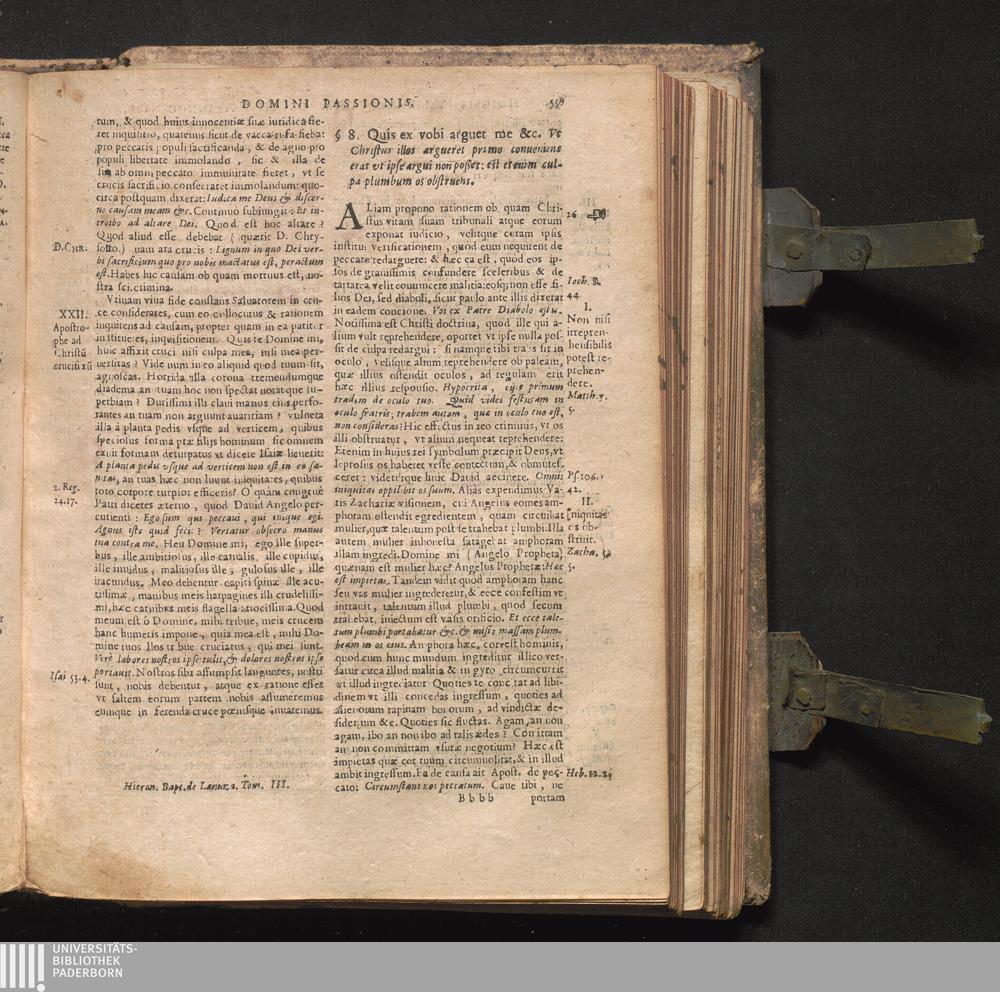 DOMINI PASSIONIS.
tum, & quod huius innocentiæ suæ iuridica fie-
ret inquisitio, quatenus sicut de vacca rufa fiebat
pro peccatis populi sacrificanda, & de agno pro
populi libertate immolando, sic & illa de
sua ab omni peccato immunitate fieret, vt se
crucis sacrificio consecraret immolandum: quo-
circa postquam dixerat: Iudica me Deus & discer-
ne causam meam &c. Continuò subiungit: Et in-
troibo ad altare Dei. Quod est hoc altare?
Quod aliud esse debebat (quærit D. Chry-
D. CHR.
sosto.) quam ara crucis: Lignum in quo Dei ver-
bi sacrificium quo pro nobis mactatus est, peractum
est. Habes hic causam ob quam mortuus est, no-
stra sci. crimina.
Vtinam viua fide constans Saluatorem in cru-
XXII.
Apostro-
phe ad
Christũ
crucifixũ
ce considerares, cum eo collocutus & rationem
inquirens ad causam, propter quam in ea patitur
institueres, inquisitionem. Quis te Domine mi,
huic affixit cruci nisi culpa mea, nisi mea per-
uersitas? Vide num in eo aliquid quod tuum sit,
agnoscas. Horrida illa corona tremendumque
diadema an tuam hoc non spectat notatque su-
perbiam? Durissimi illi claui manus eius perfo-
rantes an tuam non arguunt auaritiam? vulnera
illa à planta pedis vsque ad verticem, quibus
speciosus forma præ filijs hominum sic omnem
exuit formam deturpatus vt dicere Isaiæ licuerit:
A planta pedis vsque ad verticem non est in eo sa-
nitas, an tuas hæc non luunt iniquitates, quibus
2. Reg.
24.17.
toto corpore turpior efficeris? O quàm congruè
Patri diceres æterno, quod Dauid Angelo per-
cutienti: Ego sum qui peccaui, qui inique egi.
Agnus iste quid fecit? Vertatur obsecro manus
tua contra me. Heu Domine mi, ego ille super-
bus, ille ambitiosus, ille carnalis, ille cupidus,
ille inuidus, malitiosus ille, gulosus ille, ille
iracundus. Meo debentur capiti spinæ illæ acu-
tissimæ, manibus meis harpagines illi crudelissi-
mi, hæc carnibus meis flagella atrocissima. Quod
meum est ò Domine, mihi tribue, meis crucem
hanc humeris impone, quia mea est, mihi Do-
mine tuos illos tribue cruciatus, qui mei sunt.
Verè labores nostros ipse tulit, & dolores nostros ipse
Isai 53.4.
portauit. Nostros sibi assumpsit languores, nostri
sunt, nobis debentur, atque ex ratione esset
vt saltem eorum partem nobis assumeremus
eumque in ferenda cruce pœnisque iuuaremus.
Hieron. Bapt. de Lanuza. Tom. III.
§ 8. Quis ex vobis arguet me &c. Vt
Christus illos argueret primo conueniens
erat vt ipse argui non posset: est etenim cul-
pa plumbum os obstruens.
ALiam propono rationem ob quam Chri-
26
stus vitam suam tribunali atque eorum
exponat iudicio, velitque coram ipsis
institui verificationem, quod eum nequirent de
peccato redarguere: & hæc ea est, quod eos ip-
sos de grauissimis confundere sceleribus & de
tartarea velit conuincere malitia: eosq; non esse fi-
Ioch. 8.
44
lios Dei, sed diaboli, sicut paulo ante illis dixerat
in eadem concione. Vos ex Patre Diabolo estis.
I.
Non nisi
irrepren-
hensibilis
potest re-
prehen-
dere.
Matth. 7.
5
Notissima est Christi doctrina, quod ille qui a-
lium vult reprehendere, oportet vt ipse nulla pos-
sit de culpa redargui: si namque tibi trabs sit in
oculo, velisque alium reprehendere ob paleam,
quæ illius ostendit oculos, ad regulam erit
hæc illius responsio. Hypocrita, eijce primum
trabem de oculo tuo. Quid vides festucam in
oculo fratris, trabem autem, quæ in oculo tuo est,
non consideras? Hic effectus in reo criminis, vt os
illi obstruatur, vt alium nequeat reprehendere:
Etenim in huius rei symbolum præcipit Deus, vt
leprosus os haberet veste contectum, & obmutes-
ceret: videturque huic Dauid accinere. Omnis
Ps. 106.
42.
iniquitas oppilabit os suum. Aliàs expendimus Va-
II.
Iniquitas
os ob-
struit.
Zacha. 5
5.
tis Zachariæ visionem, cui Angelus comes am-
phoram ostendit egredientem, quam circuibat
mulier, quæ talentum post se trahebat plumbi. Illa
autem mulier inhonesta satagebat amphoram
illam ingredi. Domine mi (Angelo Propheta)
quænam est mulier hæc? Angelus Prophetæ: Hæc
est impietas. Tandem vidit quod amphoram hanc
seu vas mulier ingrederetur, & ecce confestim vt
intrauit, talentum illud plumbi, quod secum
trahebat, iniectum est vasis orificio. Et ecce tale-
tum plumbi portabatur &c. & misit massam plum-
beam in os eius. Amphora hæc, cor est hominis,
quod cum hunc mundum ingreditur illico ver-
satur circa illud malitia & in gyro circumcurrit
vt illud ingrediatur Quoties te concitat ad libi-
dinem vt illi concedas ingressum, quoties ad
alienorum rapinam bonorum, ad vindictæ de-
siderium &c. Quoties sic fluctas. Agam, an non
agam, ibo an non ibo ad talis ædes? Comittam
an non committam vsuræ negotium? Hæc est
impietas quæ cor tuum circumuolitat, & in illud
ambit ingressum. Ea de causa ait Apost. de pec-
Heb. 12. 2
cato: Circumstans nos peccatum. Caue tibi, ne
Bbbb portam
UNIVERSITÄTS-
BIBLIOTHEK
PADERBORN